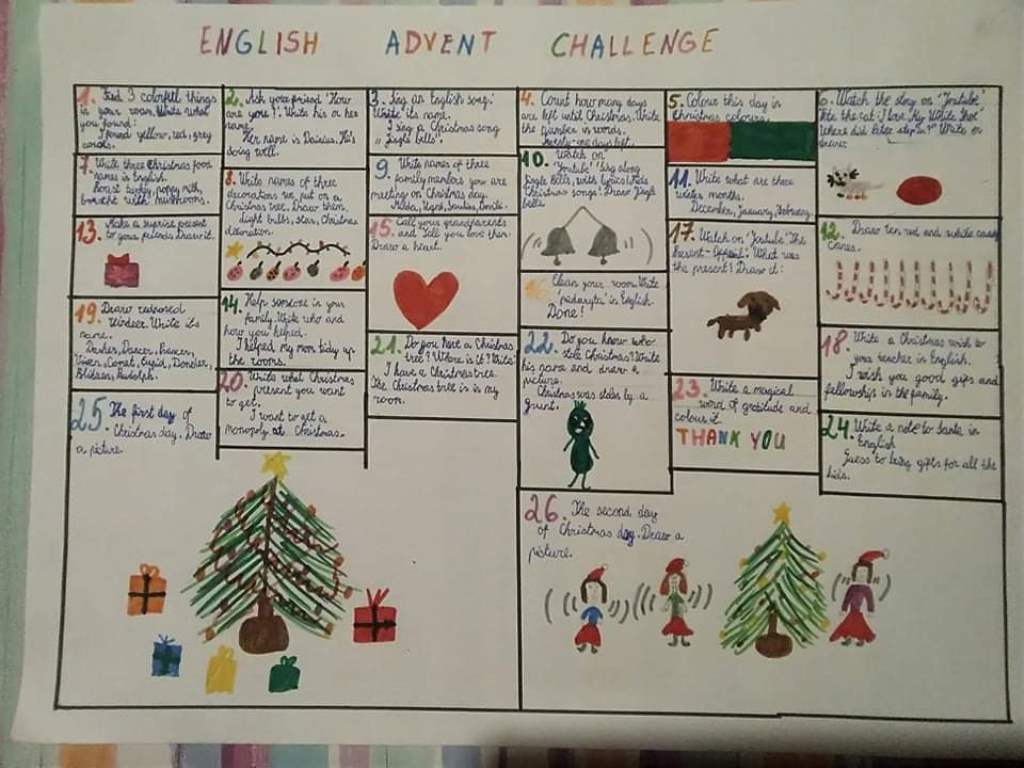 ENGLISH ADVENT CHALLENGE
1. Find 3 colorfull things
in your room. Write what
you found:
I found yellow, red, grey
2. Ask your friend "How
are you?". Write his or her
name.
Her name is He's
doing well.
3. Sing an English song.
Write its name.
I sing a Christmas song
"Jingle bells".
4. Count how many days
are left until Christmas. Write
the number in words.
days left.
5. Colour this day in
Christmas colours.
6. Watch the story on "Youtube"
Pete the cat I Love My White Shoes
Where did Pete step in?" Write or
draw:
7. Write three Christmas food
names in English.
Roast turkey, poppy milk,
with mushrooms.
8. Write names of three
decorations we put on a
Christmas tree. Draw them.
Light bulbs, star, Christmas
decoration.
9. Write names of three
family members you are
meeting on Christmas day.
10. Watch on
"Youtube" "Sing along
Jingle Bells, with lyrics Kids
Christmas songs! Draw jingle
bells
11. Write what are three
winter months.
December, January, February.
12. Draw ten red and white candy
canes.
13. Make a surprise present
to your friend. Draw it.
14. Help someone in your
family. Write who and
how you helped.
I helped my mom tidy up
the rooms.
15. Call your grandparents
and tell you love them.
Draw a heart.
16. Clean your room. Write
"padaryta" in English.
Done!
17. Watch on "Youtube" "The
Present - Official". What was
the present? Draw it:
18. Write a Christmas wish to
your teacher in English.
I wish you good gifts and
fellowship in the family.
19. Draw rednosed
reindeer. Write its
name.
Dasher, Dancer, Prancer,
Vixen, Comet, Cupid, Donder,
Blitzen, Rudolph.
20. Write what Christmas
present you want
to get.
I want to get a
monopoly at Christmas.
21. Do you have a Christmas
tree? Where is it? Write:
I have a Christmas tree.
The Christmas tree is in my
room.
22. Do you know who
stole Christmas? Write
his name and draw a
picture.
Christmas was stolen by a
23. Write a magical
word of gratitude and
colour it.
THANK YOU
24. Write a note to Santa in
English
Guess to bring gifts for all the
kids.
25. The first day of
Christmas day. Draw
a picture.
26. The second day
of Christmas day. Draw a
picture.